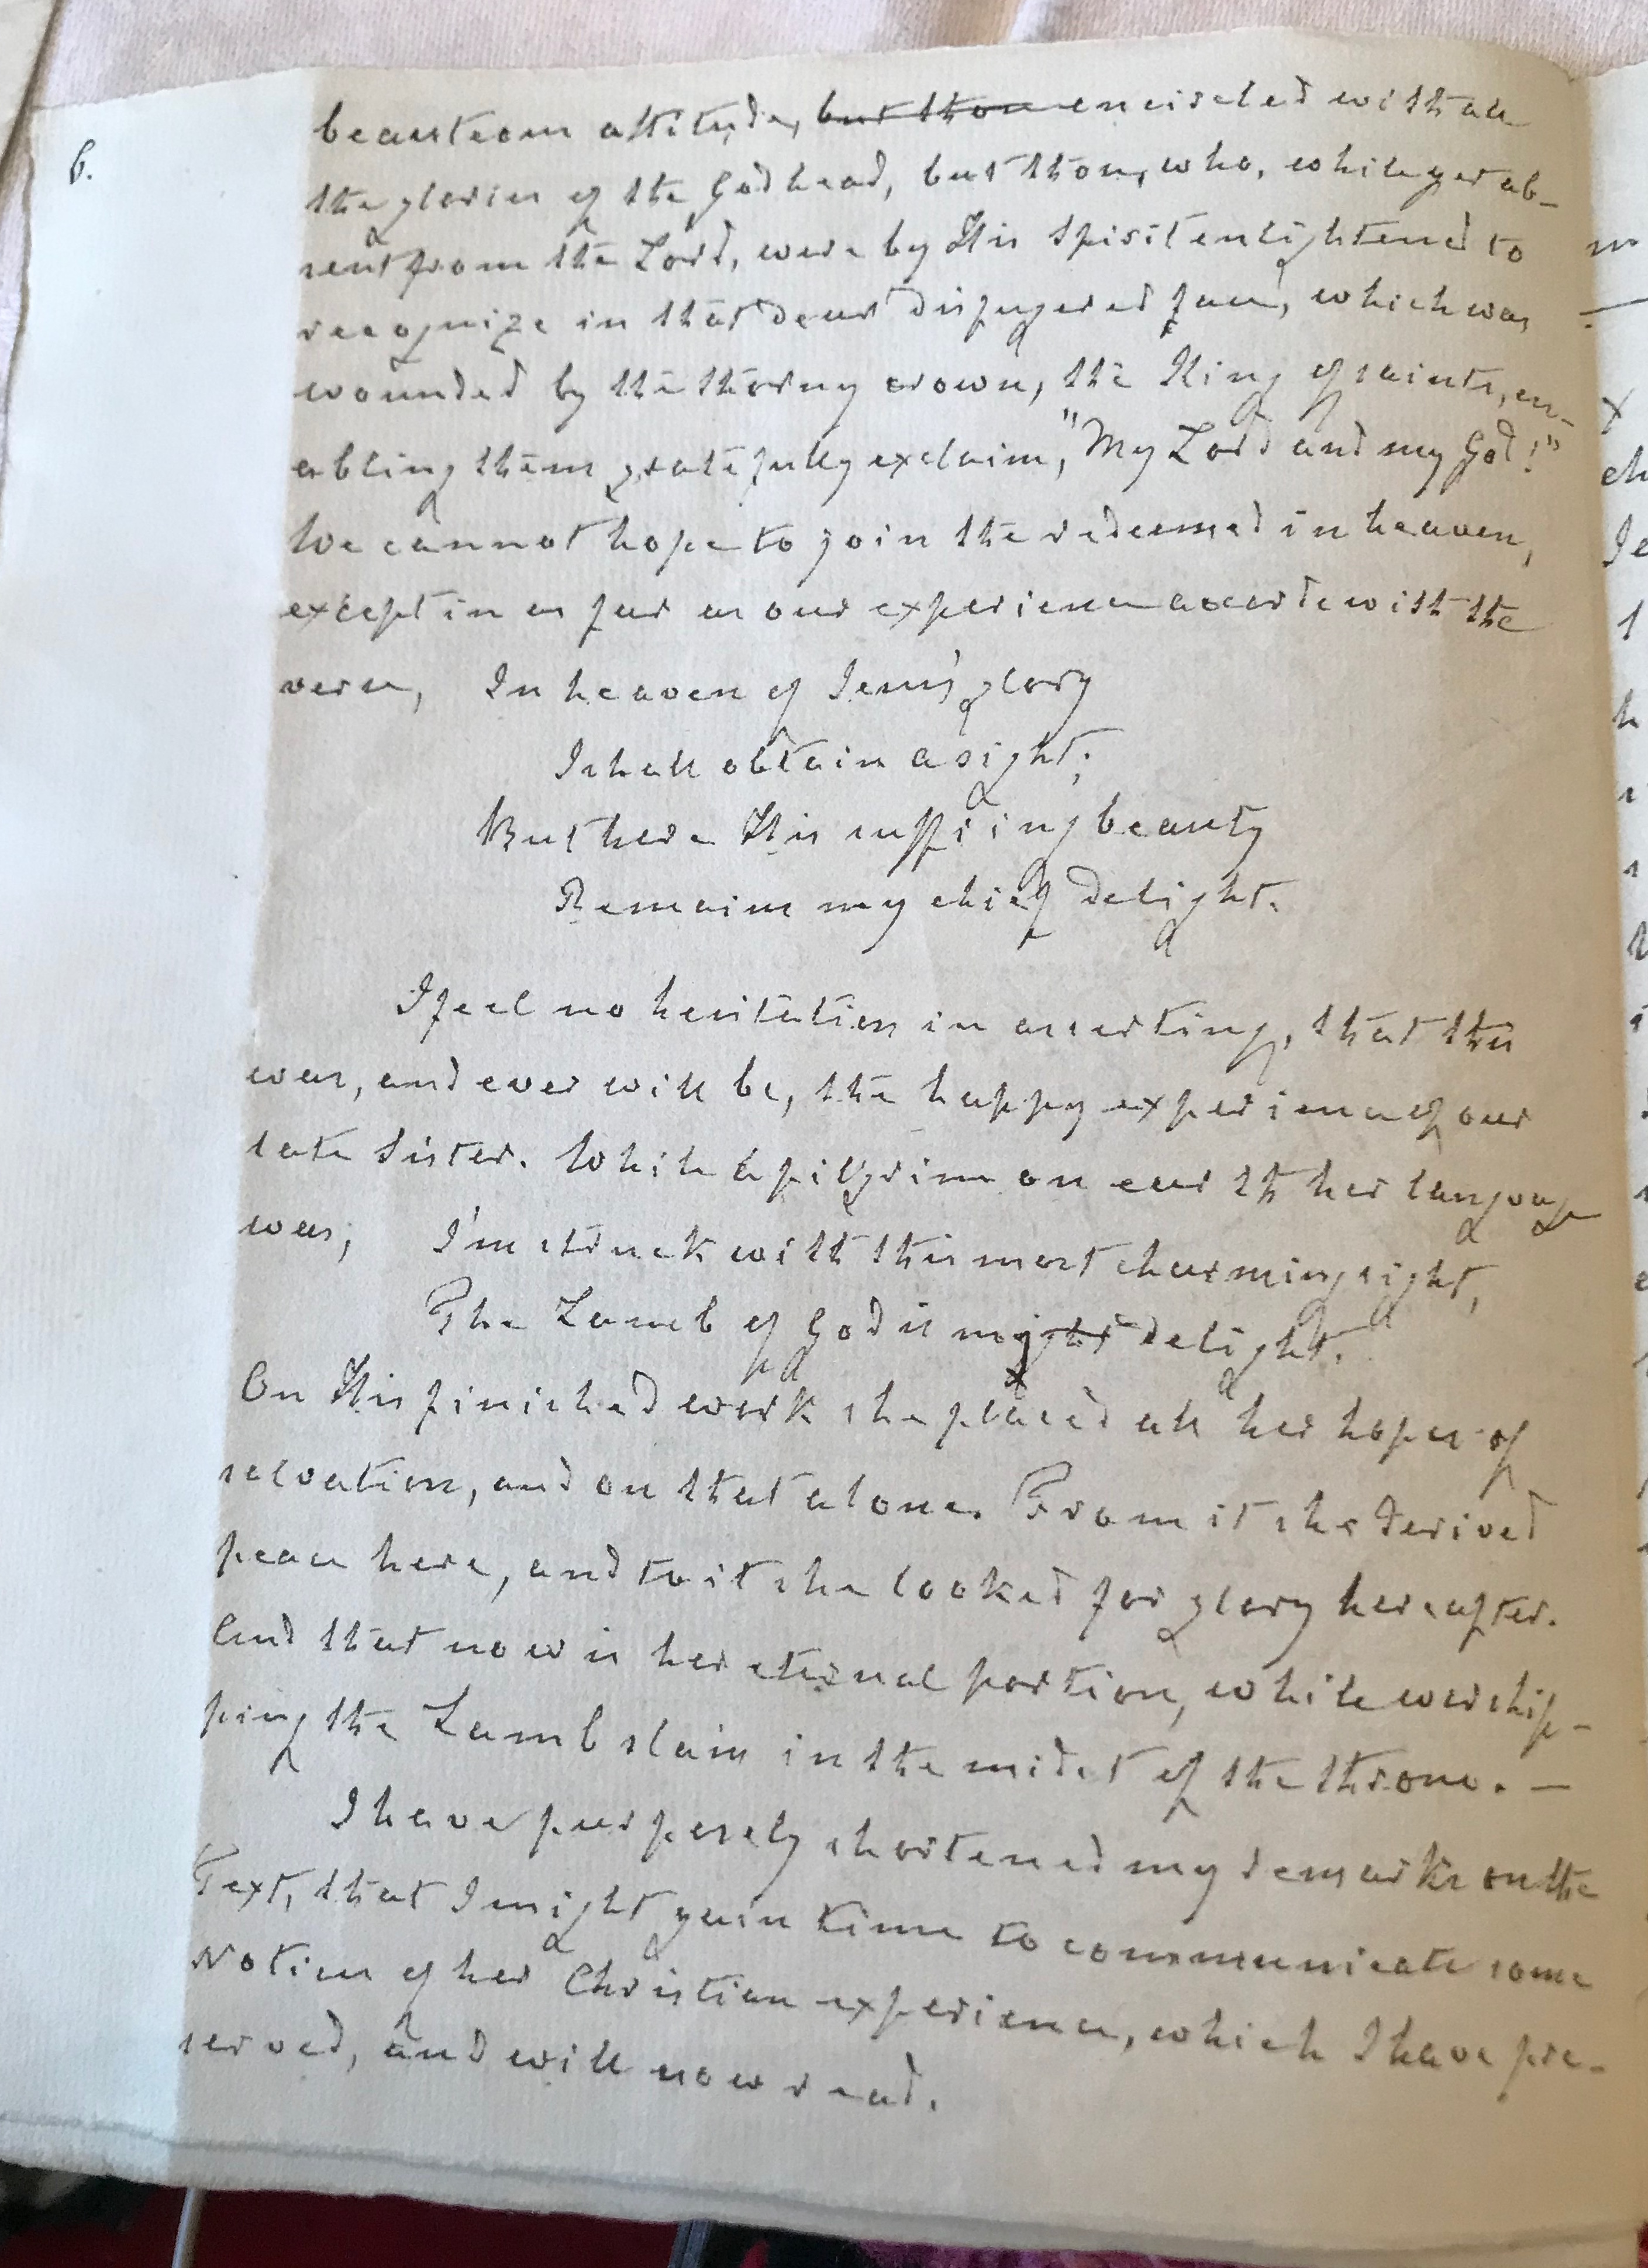 6.
beauteous attitude, but those encircled with all
the glories of the Godhead, but those, who, while yet ab-
sent from the Lord, were by His Spirit enlightened to
recognize in that dear disfigured face, which was
wounded by the thorny crown, the King of saints, en-
abling them gratefully exclaim, "My Lord and my God!"
We cannot hope to join the redeemed in heaven,
except in as far as our experience accords with the
verse, In heaven of Jesus' glory
I shall obtain a sight;
But here His suffering beauty
Remains my chief delight.
I feel no hesitation in asserting, that this
was, and ever will be, the happy experience of our
late Sister. While a pilgrim on earth her language
was; I'm struck with this most charming sight,
The Lamb of God is my delight.
On His finished work she placed all her hopes of
salvation, and on that alone. From it she derived
peace here, and to it she looked for glory hereafter.
And that now is her eternal portion, while worship-
ping the Lamb slain in the midst of the throne. —
I have purposely shortened my remarks on the
Text, that I might gain time to communicate some
Notices of her Christian experience, which I have pre-
served, and will now read.